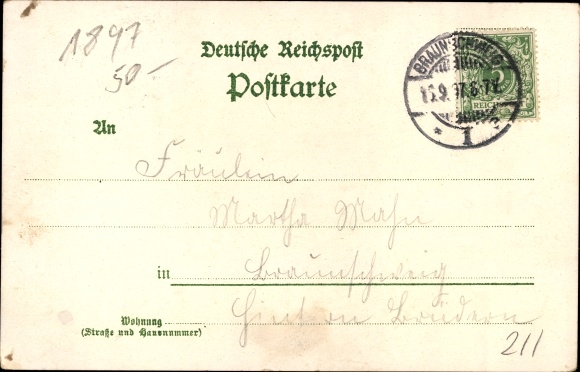 1897
50.-
Deutsche Reichspost
Postkarte
BRAUNSCHWEIG
15.9.97.6-7N.
* 1
5
REICHSPOST
An
Fräulein
Martha Mahn
in Braunschweig
Hintern Brüdern
Wohnung
(Straße und Hausnummer)
211